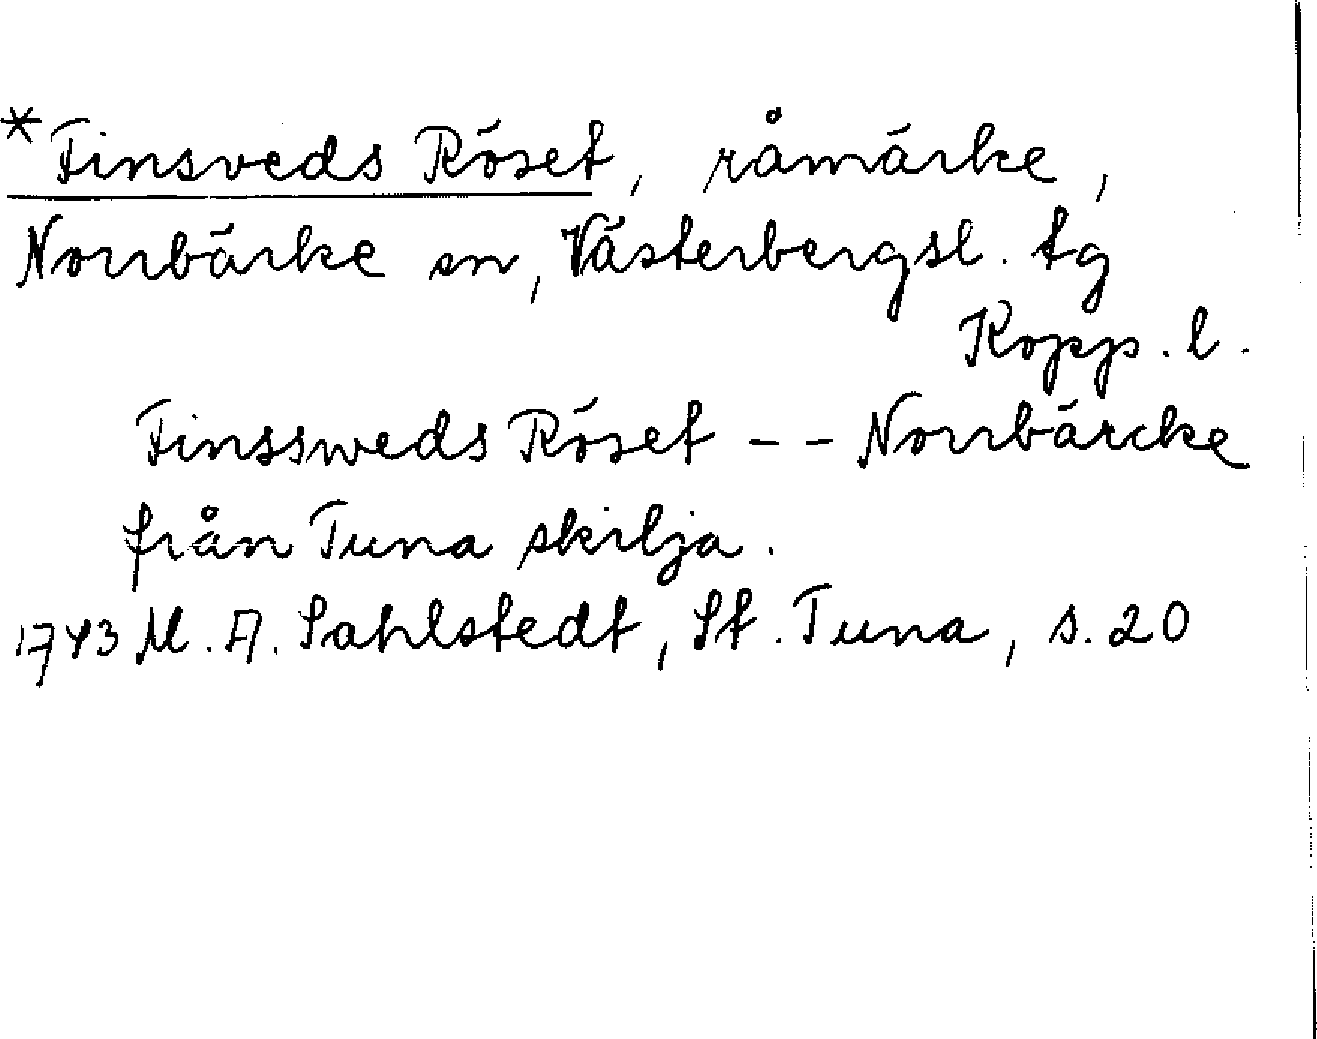 *Finsveds Röset, råmärke,
Norrbärke sn, Västerbergsl. tg
Kopp. l.
Finssweds Röset -- Norrbärcke
från Tuna skilja.
1743 M. A. Sahlstedt, St. Tuna, s. 20